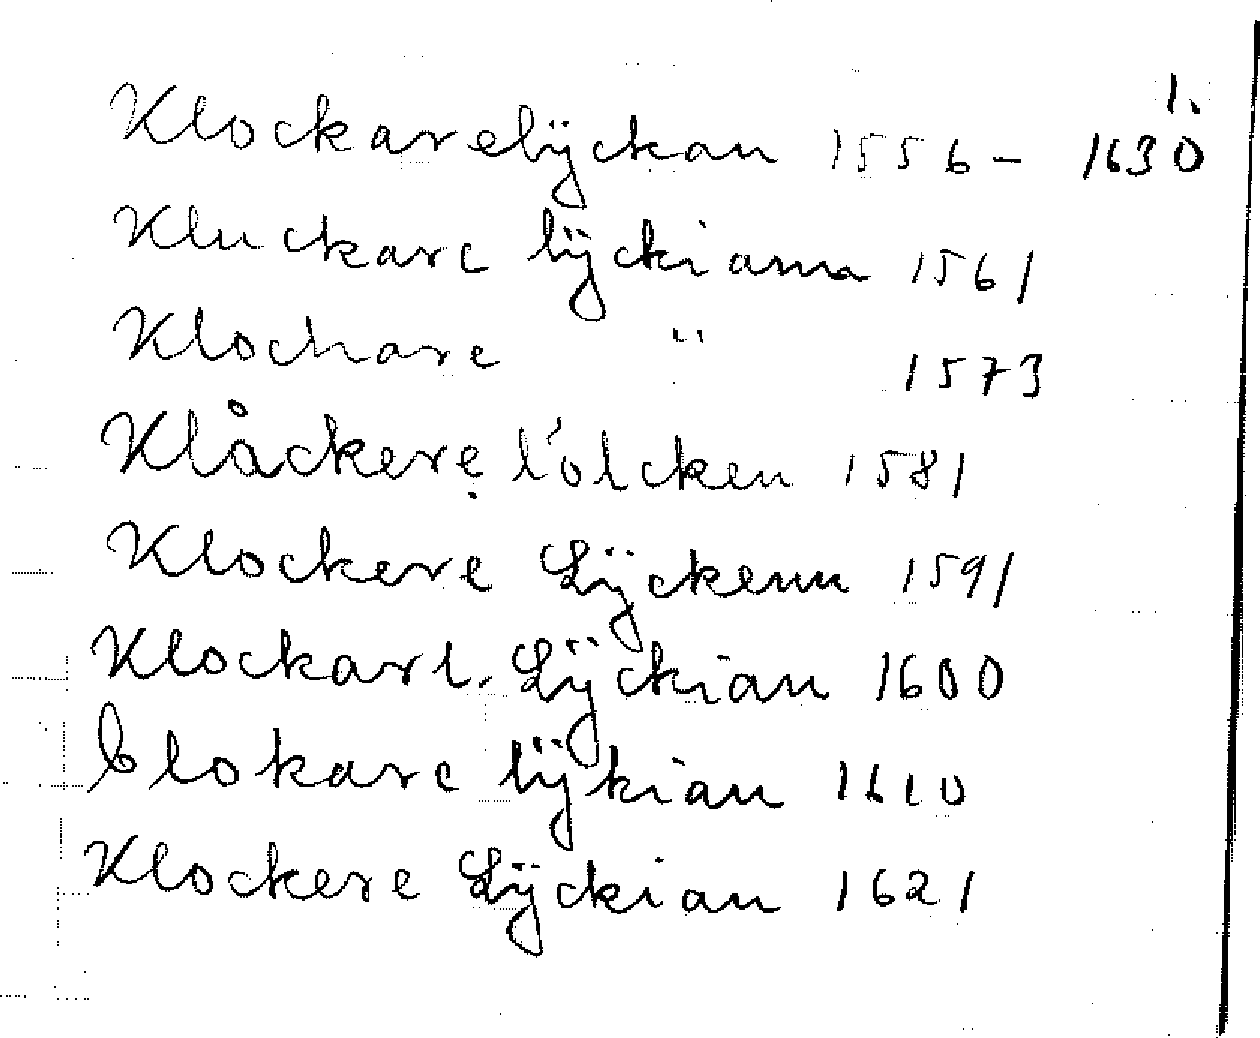 1.
Klockarelÿckan 1556 - 1630
Kluckare lÿckiana 1561
Klockare " 1573
Klåckere lölcken 1581
Klockere Lÿckenn 1591
Klockare Lÿckian 1600
Clokare lÿkian 1610
Klockere Lÿckian 1621